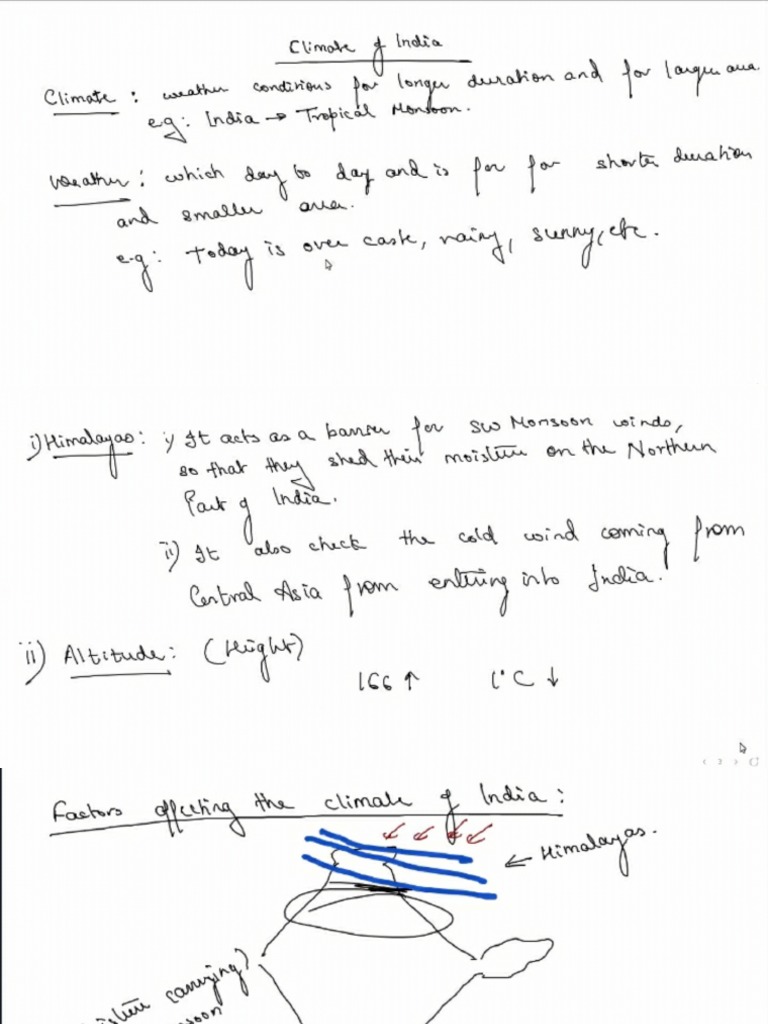 Climate of India
Climate : weather conditions for longer duration and for larger area.
e.g: India → Tropical Monsoon.
Weather : which day to day and is for for shorter duration
and smaller area.
e.g: Today is over cast, rainy, sunny, etc.
i) Himalayas : i) It acts as a barrier for SW Monsoon winds,
so that they shed their moisture on the Northern
Part of India.
ii) It also check the cold wind coming from
Central Asia from entering into India.
ii) Altitude : (Height)
166 ↑ 1°C ↓
Factors affecting the climate of India :
← Himalayas.
carrying